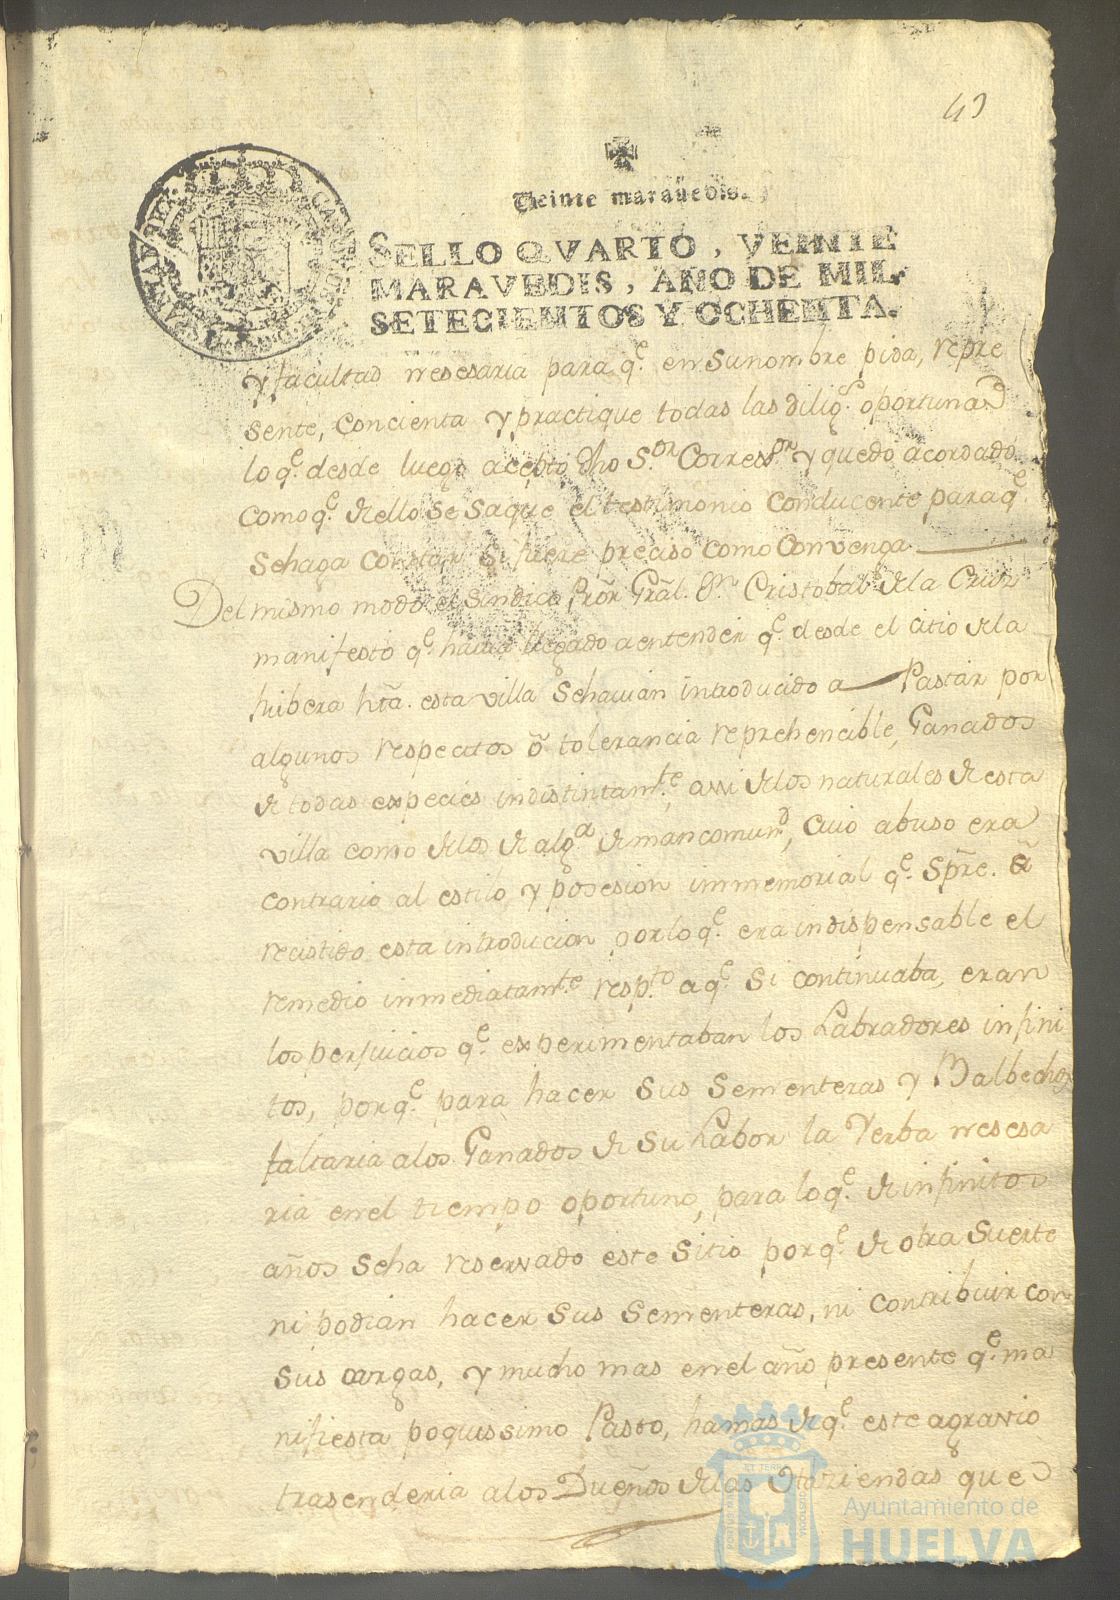 49
Veinte marauedis.
SELLO QVARTO, VEINTE
MARAVEDIS, AÑO DE MIL
SETECIENTOS Y OCHENTA.
y facultad nesesaria para q.e en su nombre pida, repre
sente, concienta y practique todas las dilig.s oportunas
lo q.e desde luego acepto dho S.or Corres.or y quedo acordado
como q.e de ello se saque el testimonio conducente para q.e
se haga constar si fuere preciso como convenga
Del mismo modo el Sindico Pror Gral. Dn Cristobal de la Cruz
manifesto q.e havia llegado a entender q.e desde el citio de la
hibera hta. esta villa se havian introducido a Pastar por
algunos respectos ô tolerancia reprehencible, Ganados
de todas expecies indistintam.te, assi de los naturales de esta
villa como de los de alg.a de mancomun.d, cuio abuso era
contrario al estilo y posesion immemorial q.e Spre. a
recistido esta introducion, por lo q.e era indispensable el
remedio inmediatam.te resp.to a q.e si continuaba, eran
los perjuicios q.e experimentaban los Labradores infini
tos, porq.e para hacer sus sementeras y Balbechos
faltaria a los Ganados de su Labor la Yerba nesesa
ria en el tiempo oportuno, para lo q.e de infinitos
años se ha reservado este sitio porq.e de otra suerte
ni podian hacer sus sementeras, ni contribuir con
sus cargas, y mucho mas en el año presente q.e ma
nifiesta poquissimo Pasto, hamas de q.e este agravio
trasenderia a los Dueños de las Haziendas que
Ayuntamiento de
HUELVA